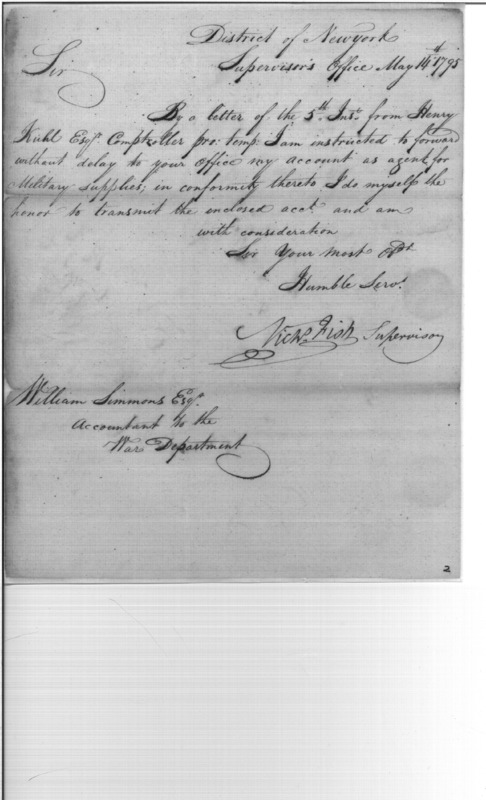 District of Newyork
Supervisor's Office May 14th 1795
Sir
By a letter of the 5th Inst. from Henry
Kuhl Esqr. Comptroller pro: temp: I am instructed to forward
without delay to your office my account as agent for
Military supplies; in conformity thereto I do myself the
honor to transmit the enclosed acct. and am
with consideration
Sir Your most Obt
Humble Servt.
Nichs Fish Supervisor
William Simmons Esqr.
Accountant to the
War Department
2